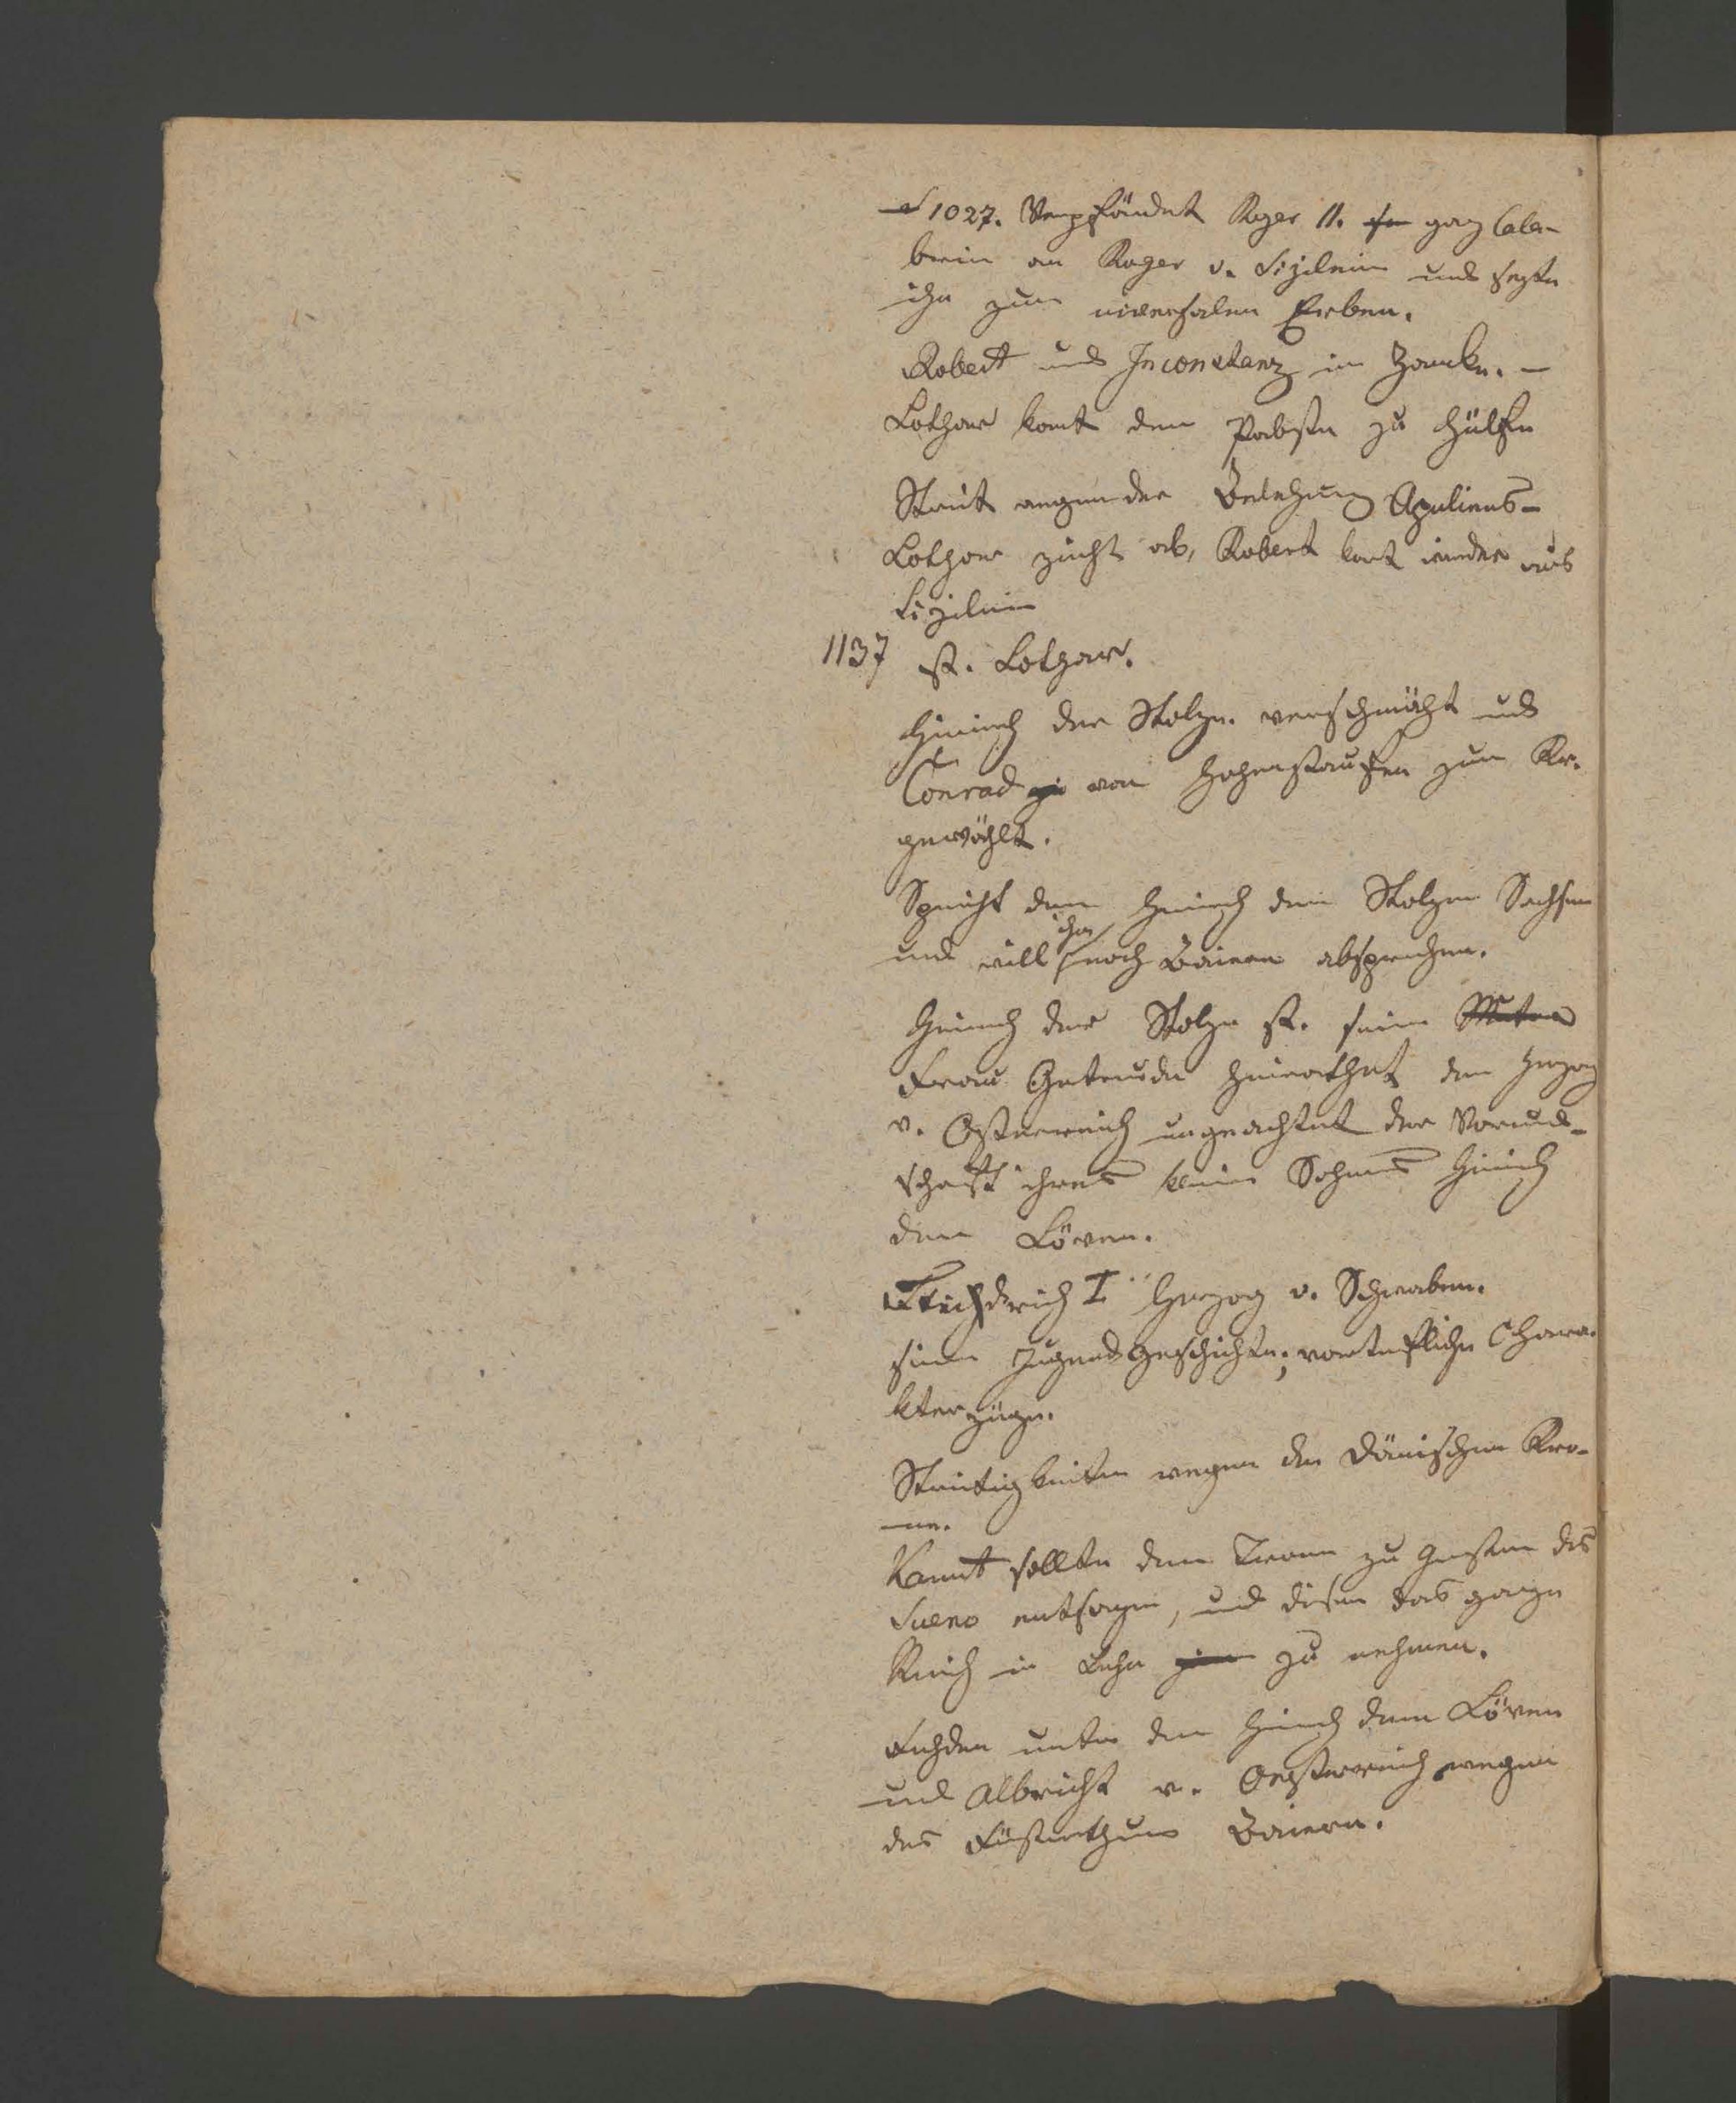 1027. Verpfändet Roger II. ganz Cala-
brien an Roger v. Sizilien und sezte
ihn zum universalen Erben.
Robert und Inconstanz im Zanke. –
Lothar komt dem Pabste zu Hülfe
Streit wegen der Belehnung Apuliens –
Lothar zieht ab, Robert komt wieder aus
Sizilien
1137 st. Lothar.
Heinrich der Stolze. verschmäht und
Conrad von Hohenstaufen zum Kr.
gewählt.
Spricht dem Heinrich dem Stolzen Sachsen
und will ihm noch Baiern absprechen.
Heinrich der Stolze st. seine
Frau Getrude heirathet den Herzog
v. Östereich ungeachtet der Vormund-
schaft ihres kleinen Sohnes Heinrich
dem Löven.
Friedrich I Herzog v. Schwaben.
seine Jugendgeschichte, vortefliche Chara-
kterzüge.
Streitigkeiten wegen der Dänischen Kro-
ne.
Kanut sollte dem Trone zu Gunsten des
Sueno entsagen, und diesen das ganze
Reich in Lehn zu nehmen.
Fehden unter den Heinrich dem Löven
und Albricht v. Oesterreich wegen
des Fürstenthums Baiern.